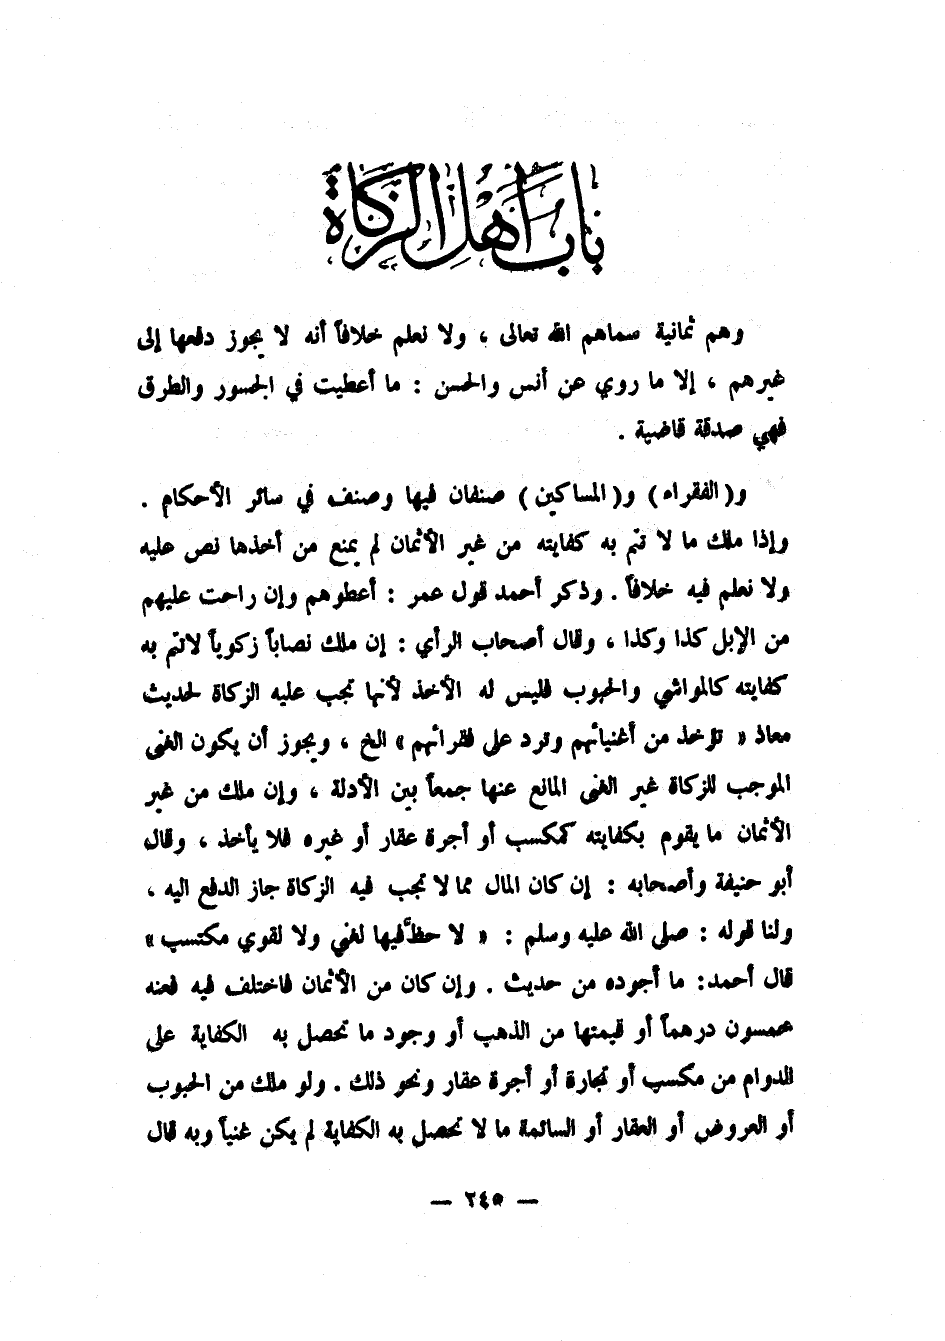 باب أهل الزكاة
وهم ثمانية سماهم الله تعالى ، ولا نعلم خلافاً أنه لا يجوز دفعها إلى
غيرهم ، إلا ما روي عن أنس والحسن : ما أعطيت في الجسور والطرق
فهي صدقة قاضية .
و ( الفقراء ) و ( المساكين ) صنفان فيها وصنف في سائر الأحكام .
وإذا ملك ما لا تتم به كفايته من غير الأثمان لم يمنع من أخذها نص عليه
ولا نعلم فيه خلافاً . وذكر أحمد قول عمر : أعطوهم وإن راحت عليهم
من الإبل كذا وكذا ، وقال أصحاب الرأي : إن ملك نصاباً زكوياً لاتتم به
كفايته كالمواشي والحبوب فليس له الأخذ لأنها تجب عليه الزكاة لحديث
معاذ « تؤخذ من أغنيائهم وترد على فقرائهم » الخ ، ويجوز أن يكون الغنى
الموجب للزكاة غير الغنى المانع عنها جمعاً بين الأدلة ، وإن ملك من غير
الأثمان ما يقوم بكفايته كمكسب أو أجرة عقار أو غيره فلا يأخذ ، وقال
أبو حنيفة وأصحابه : إن كان المال مما لا تجب فيه الزكاة جاز الدفع اليه ،
ولنا قوله : صلى الله عليه وسلم : « لا حظ فيها لغني ولا لقوي مكتسب »
قال أحمد : ما أجوده من حديث . وإن كان من الأثمان فاختلف فيه فعنه
خمسون درهماً أو قيمتها من الذهب أو وجود ما تحصل به الكفاية على
الدوام من مكسب أو تجارة أو أجرة عقار ونحو ذلك . ولو ملك من الحبوب
أو العروض أو العقار أو السائمة ما لا تحصل به الكفاية لم يكن غنياً وبه قال
— ٢٤٥ —